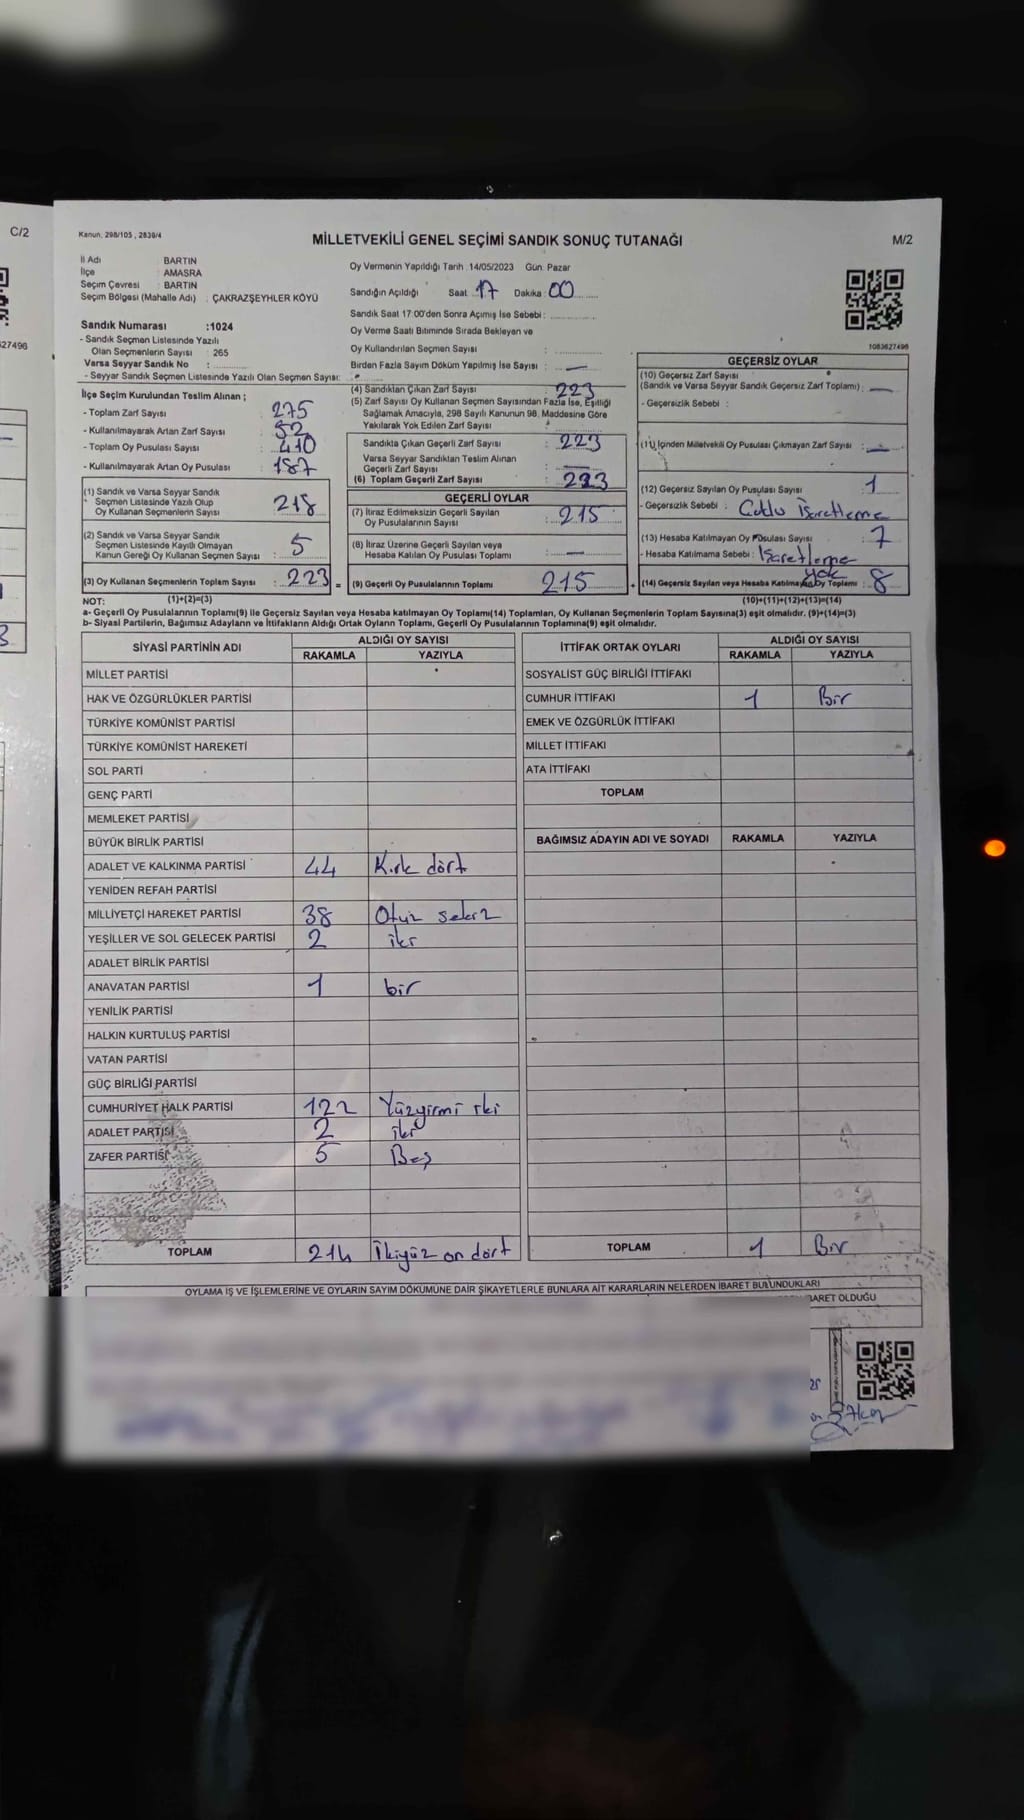 C/2
27496
Kanun. 298/105 , 2839/4
MİLLETVEKİLİ GENEL SEÇİMİ SANDIK SONUÇ TUTANAĞI
M/2
İl Adı : BARTIN
İlçe : AMASRA
Seçim Çevresi : BARTIN
Seçim Bölgesi (Mahalle Adı) : ÇAKRAZŞEYHLER KÖYÜ
Sandık Numarası :1024
- Sandık Seçmen Listesinde Yazılı
Olan Seçmenlerin Sayısı : 265
Varsa Seyyar Sandık No :
- Seyyar Sandık Seçmen Listesinde Yazılı Olan Seçmen Sayısı:
İlçe Seçim Kurulundan Teslim Alınan ;
- Toplam Zarf Sayısı : 275
- Kullanılmayarak Artan Zarf Sayısı : 52
- Toplam Oy Pusulası Sayısı : 410
- Kullanılmayarak Artan Oy Pusulası : 187
(1) Sandık ve Varsa Seyyar Sandık
Seçmen Listesinde Yazılı Olup
Oy Kullanan Seçmenlerin Sayısı : 218
(2) Sandık ve Varsa Seyyar Sandık
Seçmen Listesinde Kayıtlı Olmayan
Kanun Gereği Oy Kullanan Seçmen Sayısı : 5
(3) Oy Kullanan Seçmenlerin Toplam Sayısı : 223 =
Oy Vermenin Yapıldığı Tarih :14/05/2023 Gün: Pazar
Sandığın Açıldığı Saat 17 Dakika : 00
Sandık Saat 17:00'den Sonra Açımış İse Sebebi :
Oy Verme Saati Bitiminde Sırada Bekleyen ve
Oy Kullandırılan Seçmen Sayısı :
Birden Fazla Sayım Döküm Yapılmış İse Sayısı : —
(4) Sandıktan Çıkan Zarf Sayısı : 223
(5) Zarf Sayısı Oy Kullanan Seçmen Sayısından Fazla İse, Eşitliği
Sağlamak Amacıyla, 298 Sayılı Kanunun 98. Maddesine Göre
Yakılarak Yok Edilen Zarf Sayısı :
Sandıkta Çıkan Geçerli Zarf Sayısı : 223
Varsa Seyyar Sandıktan Teslim Alınan
Geçerli Zarf Sayısı : —
(6) Toplam Geçerli Zarf Sayısı : 223
GEÇERLİ OYLAR
(7) İtiraz Edilmeksizin Geçerli Sayılan
Oy Pusulalarının Sayısı : 215
(8) İtiraz Üzerine Geçerli Sayılan veya
Hesaba Katılan Oy Pusulası Toplamı : —
(9) Geçerli Oy Pusulalarının Toplamı : 215 +
1083627496
GEÇERSİZ OYLAR
(10) Geçersiz Zarf Sayısı
(Sandık ve Varsa Seyyar Sandık Geçersiz Zarf Toplamı) : —
- Geçersizlik Sebebi :
(11) İçinden Milletvekili Oy Pusulası Çıkmayan Zarf Sayısı : —
(12) Geçersiz Sayılan Oy Pusulası Sayısı : 1
- Geçersizlik Sebebi : İşaretleme
(13) Hesaba Katılmayan Oy Pusulası Sayısı : 7
- Hesaba Katılmama Sebebi : İşaretleme
yok
(14) Geçersiz Sayılan veya Hesaba Katılmayan Oy Toplamı : 8
NOT: (1)+(2)=(3)
(10)+(11)+(12)+(13)=(14)
a- Geçerli Oy Pusulalarının Toplamı(9) ile Geçersiz Sayılan veya Hesaba katılmayan Oy Toplamı(14) Toplamları, Oy Kullanan Seçmenlerin Toplam Sayısına(3) eşit olmalıdır. (9)+(14)=(3)
b- Siyasi Partilerin, Bağımsız Adayların ve İttifakların Aldığı Ortak Oyların Toplamı, Geçerli Oy Pusulalarının Toplamına(9) eşit olmalıdır.
SİYASİ PARTİNİN ADI
ALDIĞI OY SAYISI
RAKAMLA YAZIYLA
MİLLET PARTİSİ
HAK VE ÖZGÜRLÜKLER PARTİSİ
TÜRKİYE KOMÜNİST PARTİSİ
TÜRKİYE KOMÜNİST HAREKETİ
SOL PARTİ
GENÇ PARTİ
MEMLEKET PARTİSİ
BÜYÜK BİRLİK PARTİSİ
ADALET VE KALKINMA PARTİSİ 44 Kırk dört
YENİDEN REFAH PARTİSİ
MİLLİYETÇİ HAREKET PARTİSİ 38 Otuz sekiz
YEŞİLLER VE SOL GELECEK PARTİSİ 2 iki
ADALET BİRLİK PARTİSİ
ANAVATAN PARTİSİ 1 bir
YENİLİK PARTİSİ
HALKIN KURTULUŞ PARTİSİ
VATAN PARTİSİ
GÜÇ BİRLİĞİ PARTİSİ
CUMHURİYET HALK PARTİSİ 122 Yüzyirmi iki
ADALET PARTİSİ 2 iki
ZAFER PARTİSİ 5 Beş
TOPLAM 214 İkiyüz on dört
İTTİFAK ORTAK OYLARI
ALDIĞI OY SAYISI
RAKAMLA YAZIYLA
SOSYALİST GÜÇ BİRLİĞİ İTTİFAKI
CUMHUR İTTİFAKI 1 Bir
EMEK VE ÖZGÜRLÜK İTTİFAKI
MİLLET İTTİFAKI
ATA İTTİFAKI
TOPLAM
BAĞIMSIZ ADAYIN ADI VE SOYADI RAKAMLA YAZIYLA
TOPLAM 1 Bir
OYLAMA İŞ VE İŞLEMLERİNE VE OYLARIN SAYIM DÖKÜMÜNE DAİR ŞİKAYETLERLE BUNLARA AİT KARARLARIN NELERDEN İBARET BULUNDUKLARI
BARET OLDUĞU